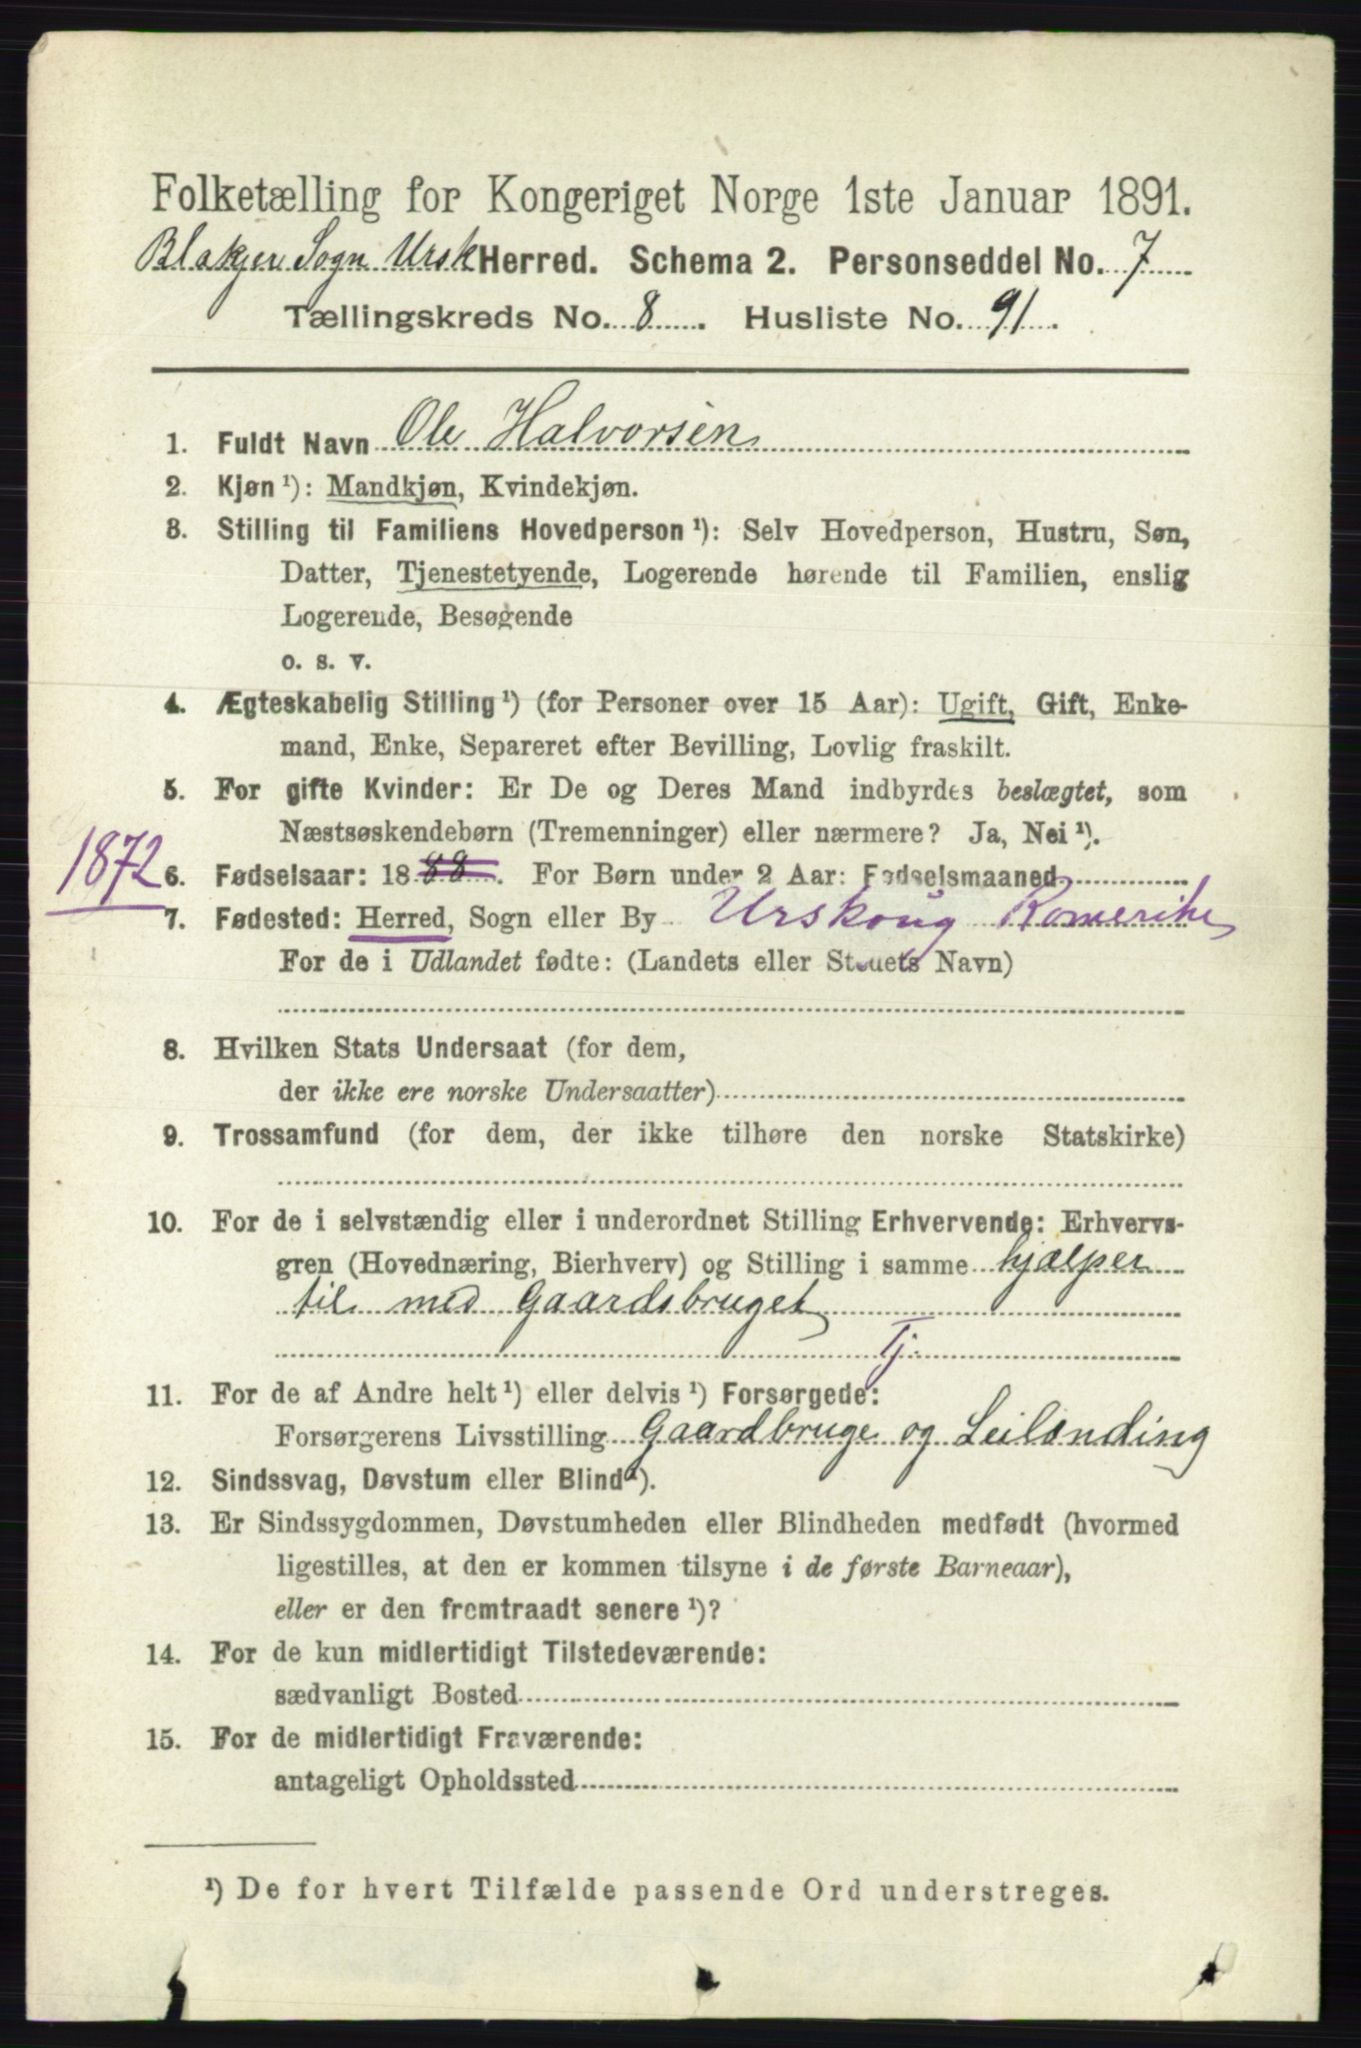 Folketælling for Kongeriget Norge 1ste Januar 1891.
Blakjer Sogn Ursk Herred. Schema 2. Personseddel No. 7
Tællingskreds No. 8. Husliste No. 91.
1. Fuldt Navn Ole Halvorsen
2. Kjøn ¹): Mandkjøn, Kvindekjøn.
3. Stilling til Familiens Hovedperson ¹): Selv Hovedperson, Hustru, Søn,
Datter, Tjenestetyende, Logerende hørende til Familien, enslig
Logerende, Besøgende
o. s. v.
4. Ægteskabelig Stilling ¹) (for Personer over 15 Aar): Ugift, Gift, Enke-
mand, Enke, Separeret efter Bevilling, Lovlig fraskilt.
5. For gifte Kvinder: Er De og Deres Mand indbyrdes beslægtet, som
Næstsøskendebørn (Tremenninger) eller nærmere? Ja, Nei ¹).
1872 6. Fødselsaar: 1888. For Børn under 2 Aar: Fødselsmaaned
7. Fødested: Herred, Sogn eller By Urskoug Romerike
For de i Udlandet fødte: (Landets eller Stedets Navn)
8. Hvilken Stats Undersaat (for dem,
der ikke ere norske Undersaatter)
9. Trossamfund (for dem, der ikke tilhøre den norske Statskirke)
10. For de i selvstændig eller i underordnet Stilling Erhvervende: Erhvervs-
gren (Hovednæring, Bierhverv) og Stilling i samme hjælper
til med Gaardsbruget
Tj.
11. For de af Andre helt ¹) eller delvis ¹) Forsørgede:
Forsørgerens Livsstilling Gaardbruge og Leilending
12. Sindssvag, Døvstum eller Blind ¹).
13. Er Sindssygdommen, Døvstumheden eller Blindheden medfødt (hvormed
ligestilles, at den er kommen tilsyne i de første Barneaar),
eller er den fremtraadt senere ¹)?
14. For de kun midlertidigt Tilstedeværende:
sædvanligt Bosted
15. For de midlertidigt Fraværende:
antageligt Opholdssted
¹) De for hvert Tilfælde passende Ord understreges.